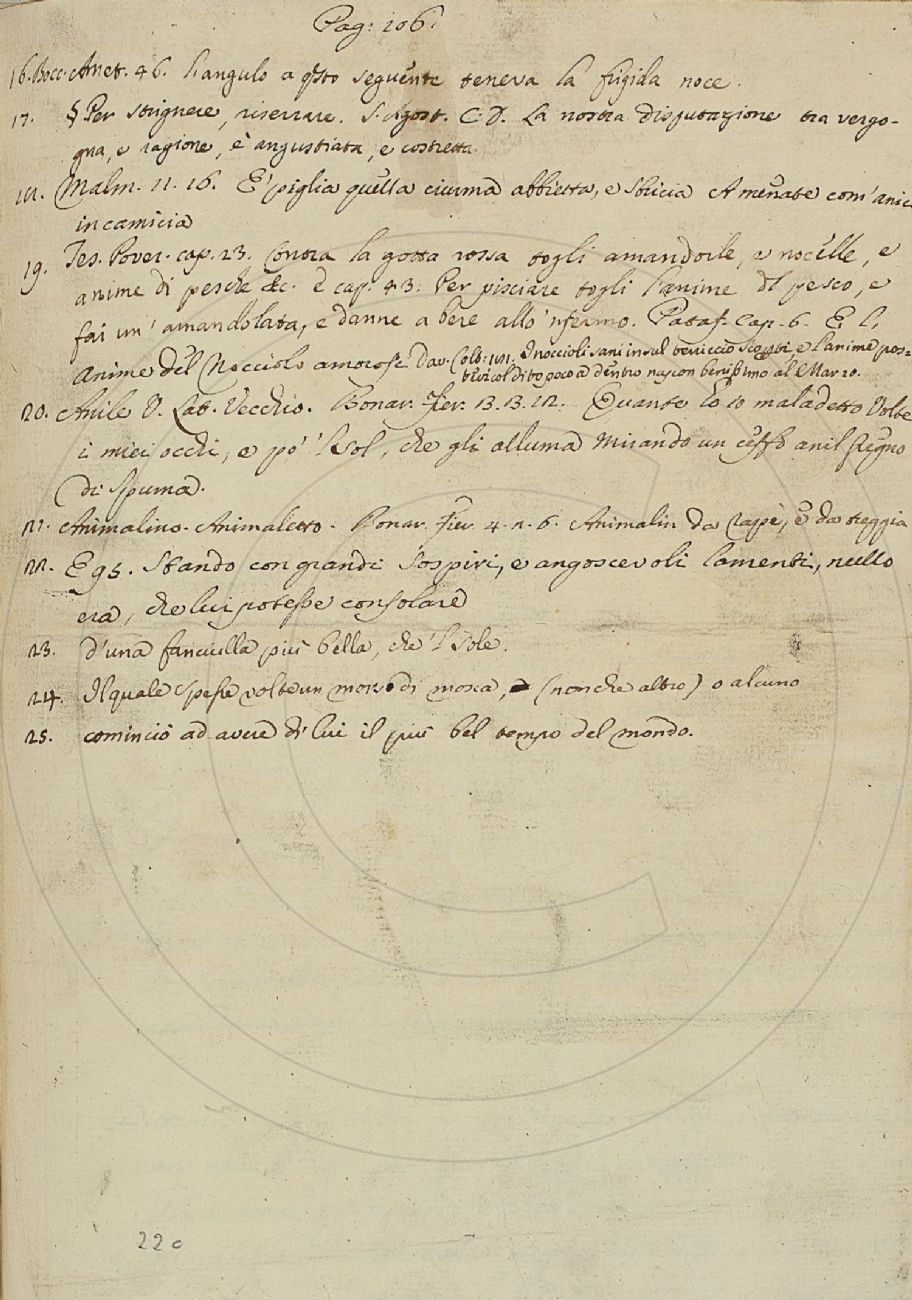 Pag: 106.
16. Bocc. Amet. 46. L'angulo a q̃sto seguente teneva la frigida noce.
17. § Per strignere, riserrare. S. Agost. C. D. La nostra disputazione tra vergo-
gna, e ragione, è angustiata, e costretta.
18. Malm. 11. 16. E' piglia quella ciurma abbietta, e sbricia A menate com' anici
in camicia
19. Tes. Pover. cap. 23. Contra la gotta rossa togli amandorle, e nocelle, e
anime di pesche &c. e cap. 43. Per pisciare togli l'anime dl pesco, e
fai un' amandolata, e danne a bere allo 'nfermo. Pataf. Cap. 6. E l'
anime del Nocciolo amorose Dav. Colt: I noccioli sani in sul terriccio e l'anime pos-
tivi col dito poco a dentro nascon benissimo al Marzo.
20. Anile V. Lat. Vecchio. Bonar. Fier. Quante Io io maladetto Volte
i miei occhi, e po' 'l Sol, che gli alluma Mirando un ceffo anil pregno
di spuma.
21. Animalino. Animaletto. Bonar. Fier. 4. 2. 6. Animalin da rappe, e da treggia
22. E g5. Stando con grandi sospiri, e angoscevoli lamenti, nullo
era, che lui potesse consolare
23. d'una fanciulla più bella, che 'l Sole.
24. Il quale spesse volte un morso di mosca, (non che altro) o alcuno
25. cominciò ad avere di lui il più bel tempo del mondo.
220